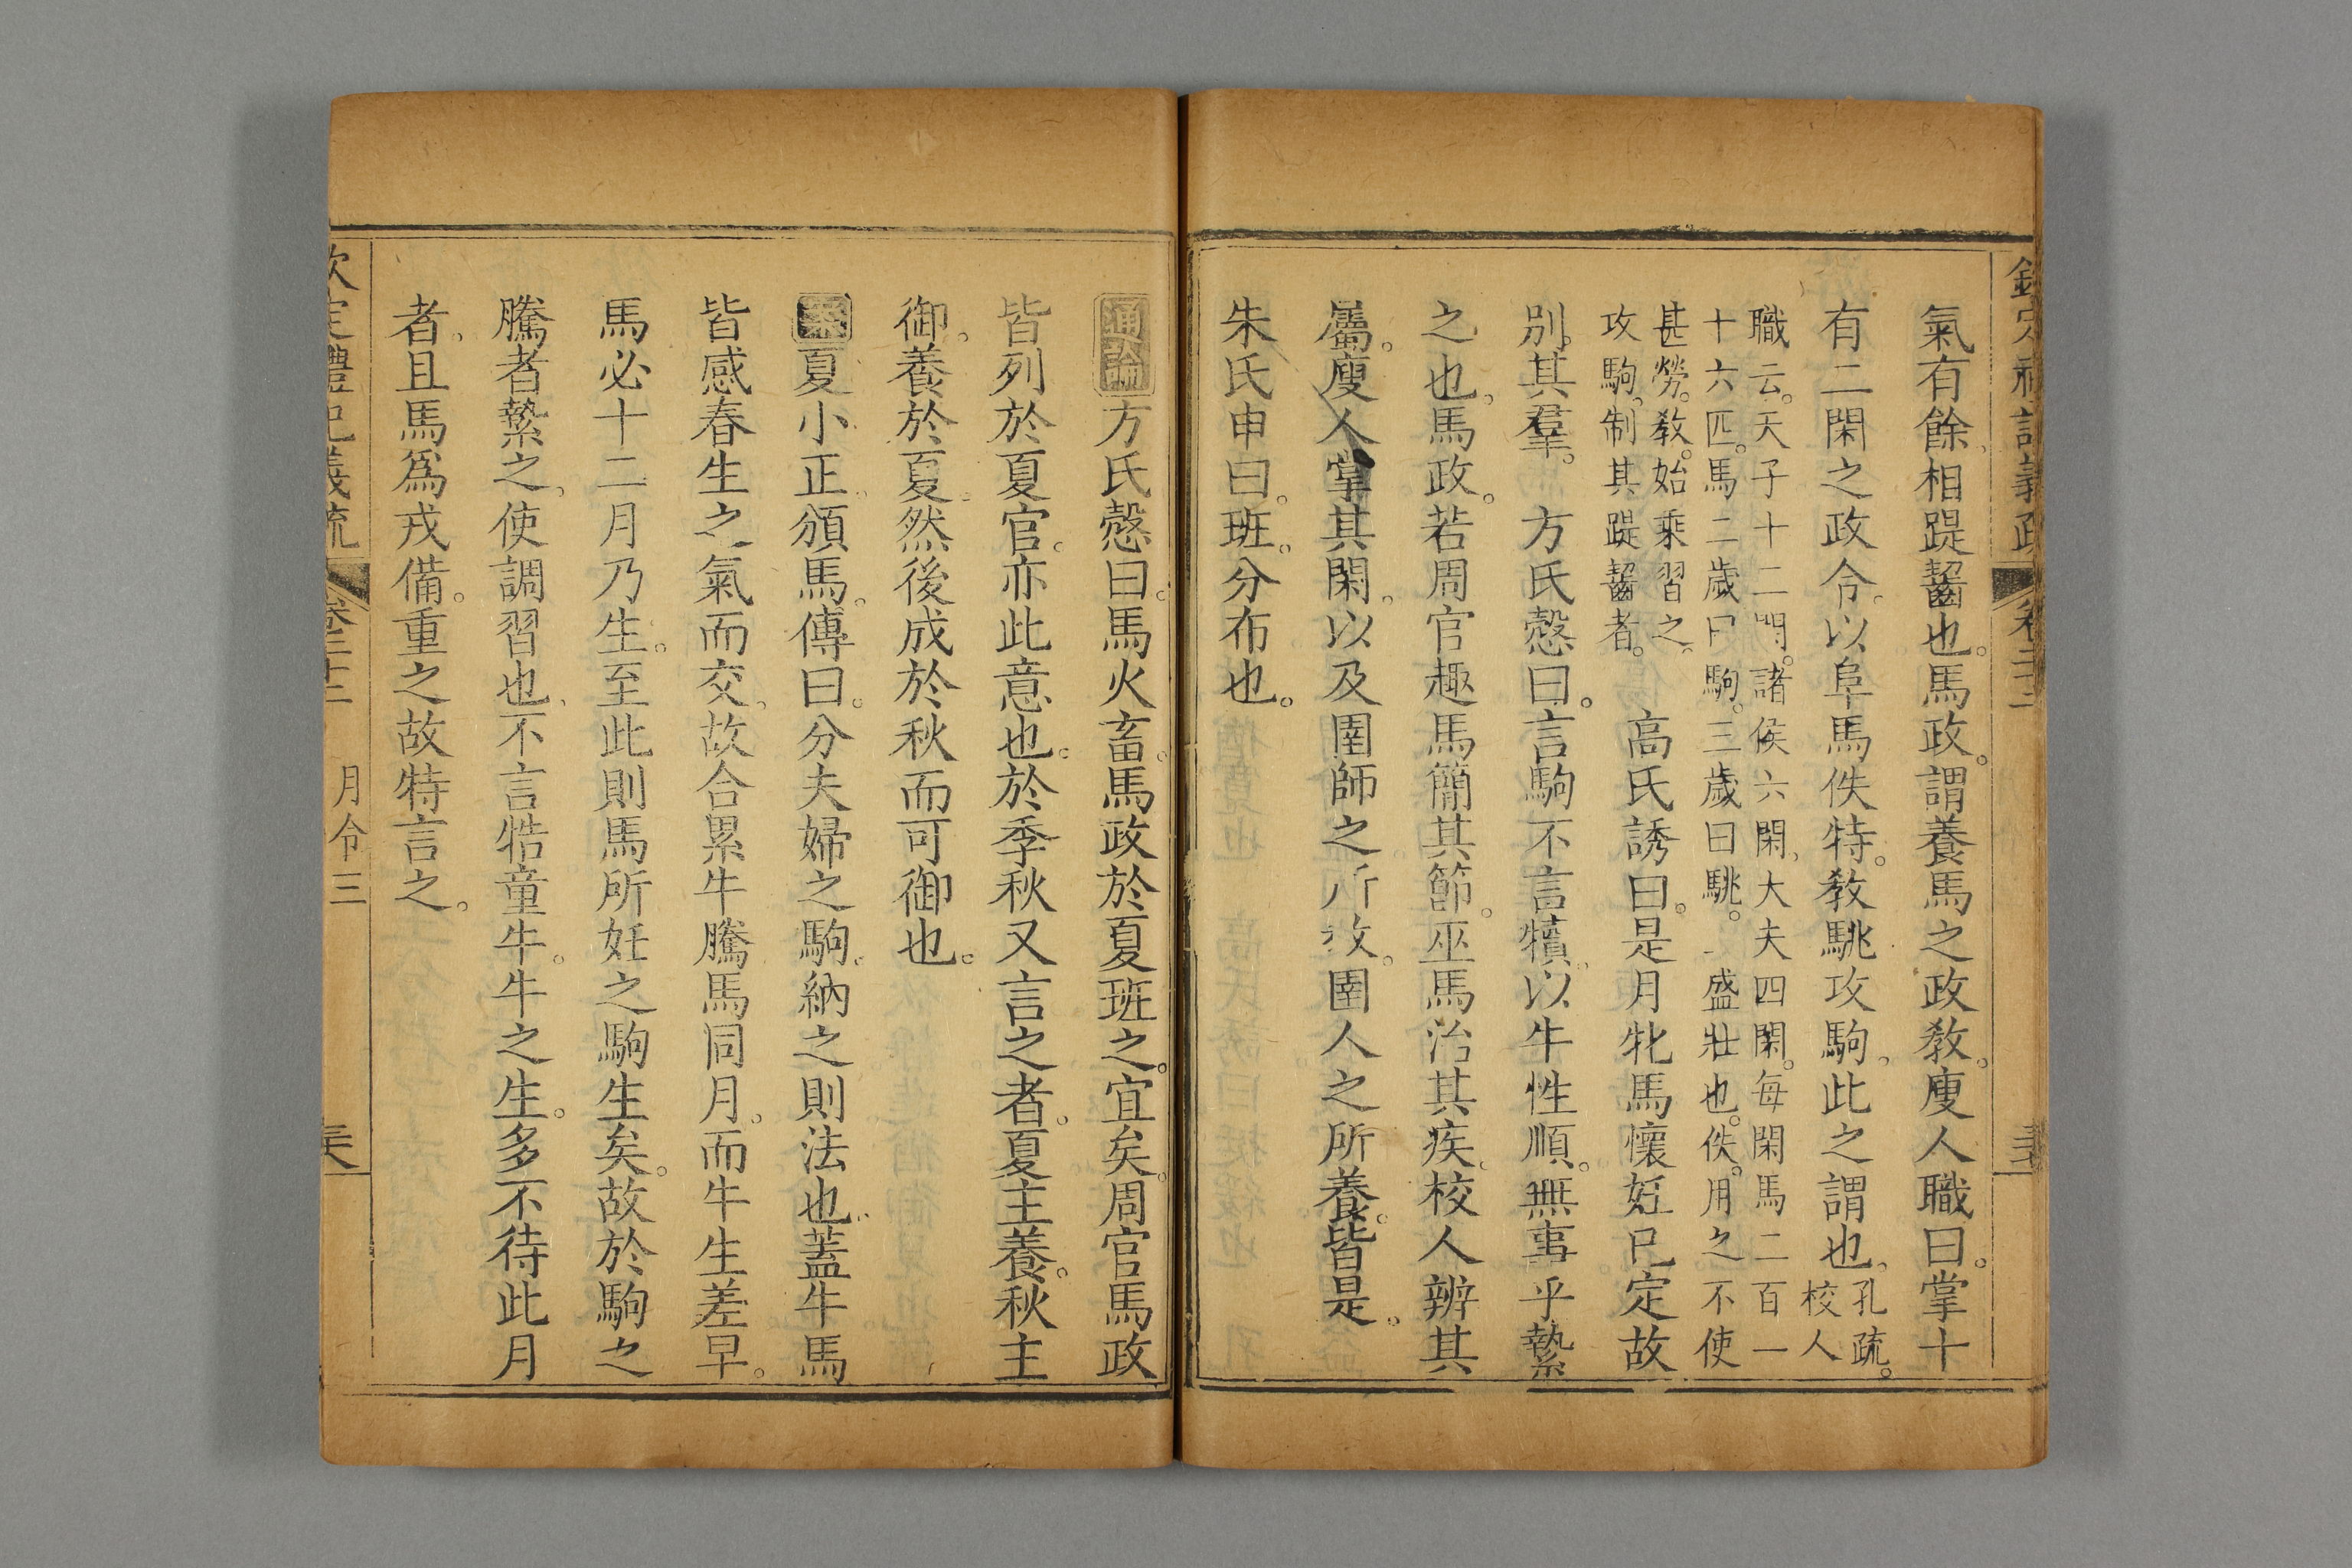 氣有餘相踶齧也。馬政。謂養馬之政教。廋人職曰。掌十
有二閑之政令。以阜馬佚特。教駣攻駒。此之謂也。孔疏。校人
職云。天子十二閑。諸侯六閑、大夫四閑。每閑馬二百一
十六匹。馬二歲曰駒。三歲曰駣。 盛壯也。佚。用之不使
甚勞。教。始乘習之、
攻駒。制其踶齧者。 高氏誘曰。是月牝馬懷妊已定故
別其羣。 方氏慤曰。言駒不言犢。以牛性順。無事乎縶
之也。馬政。若周官趣馬簡其節。巫馬治其疾。校人辨其
屬。廋人掌其閑。以及圉師之所教。圉人之所養。皆是。
朱氏申曰。班。分布也。
通論方氏慤曰。馬火畜。馬政於夏班之。宜矣。周官馬政
皆列於夏官。亦此意也。於季秋又言之者。夏主養。秋主
御。養於夏。然後成於秋而可御也。
案夏小正。頒馬。傳曰。分夫婦之駒。納之則法也。蓋牛馬
皆感春生之氣而交。故合累牛騰馬同月。而牛生差早。
馬必十二月乃生。至此則馬所妊之駒生矣。故於駒之
騰者縶之。使調習也。不言牿童牛。牛之生。多不待此月
者。且馬爲戎備。重之故特言之。
欽定禮記義疏 卷二十二 月令三